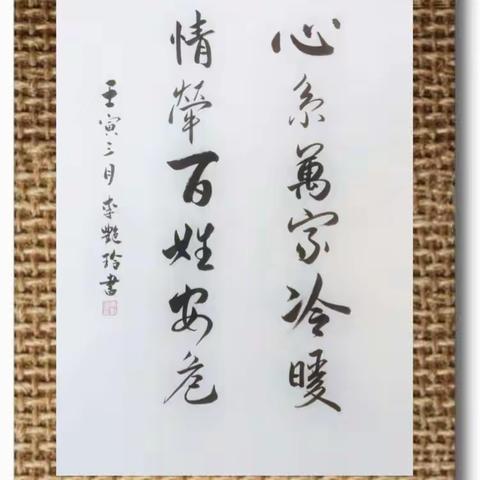 心系萬家冷暖
情牽百姓安危
壬寅三月李艷玲書